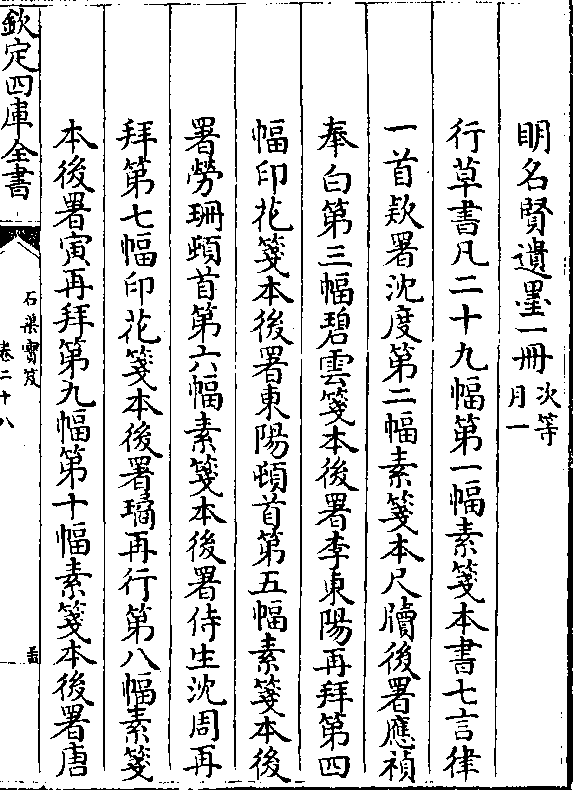 明名賢遺墨一冊次等
月一
行草書凡二十九幅第一幅素箋本書七言律
一首款署沈度第二幅素箋本尺牘後署應禎
奉白第三幅碧雲箋本後署李東陽再拜第四
幅印花箋本後署東陽頓首第五幅素箋本後
署勞珊頓首第六幅素箋本後署侍生沈周再
拜第七幅印花箋本後署璚再行第八幅素箋
本後署寅再拜第九幅第十幅素箋本後署唐
欽定四庫全書
石渠寶笈
卷二十八